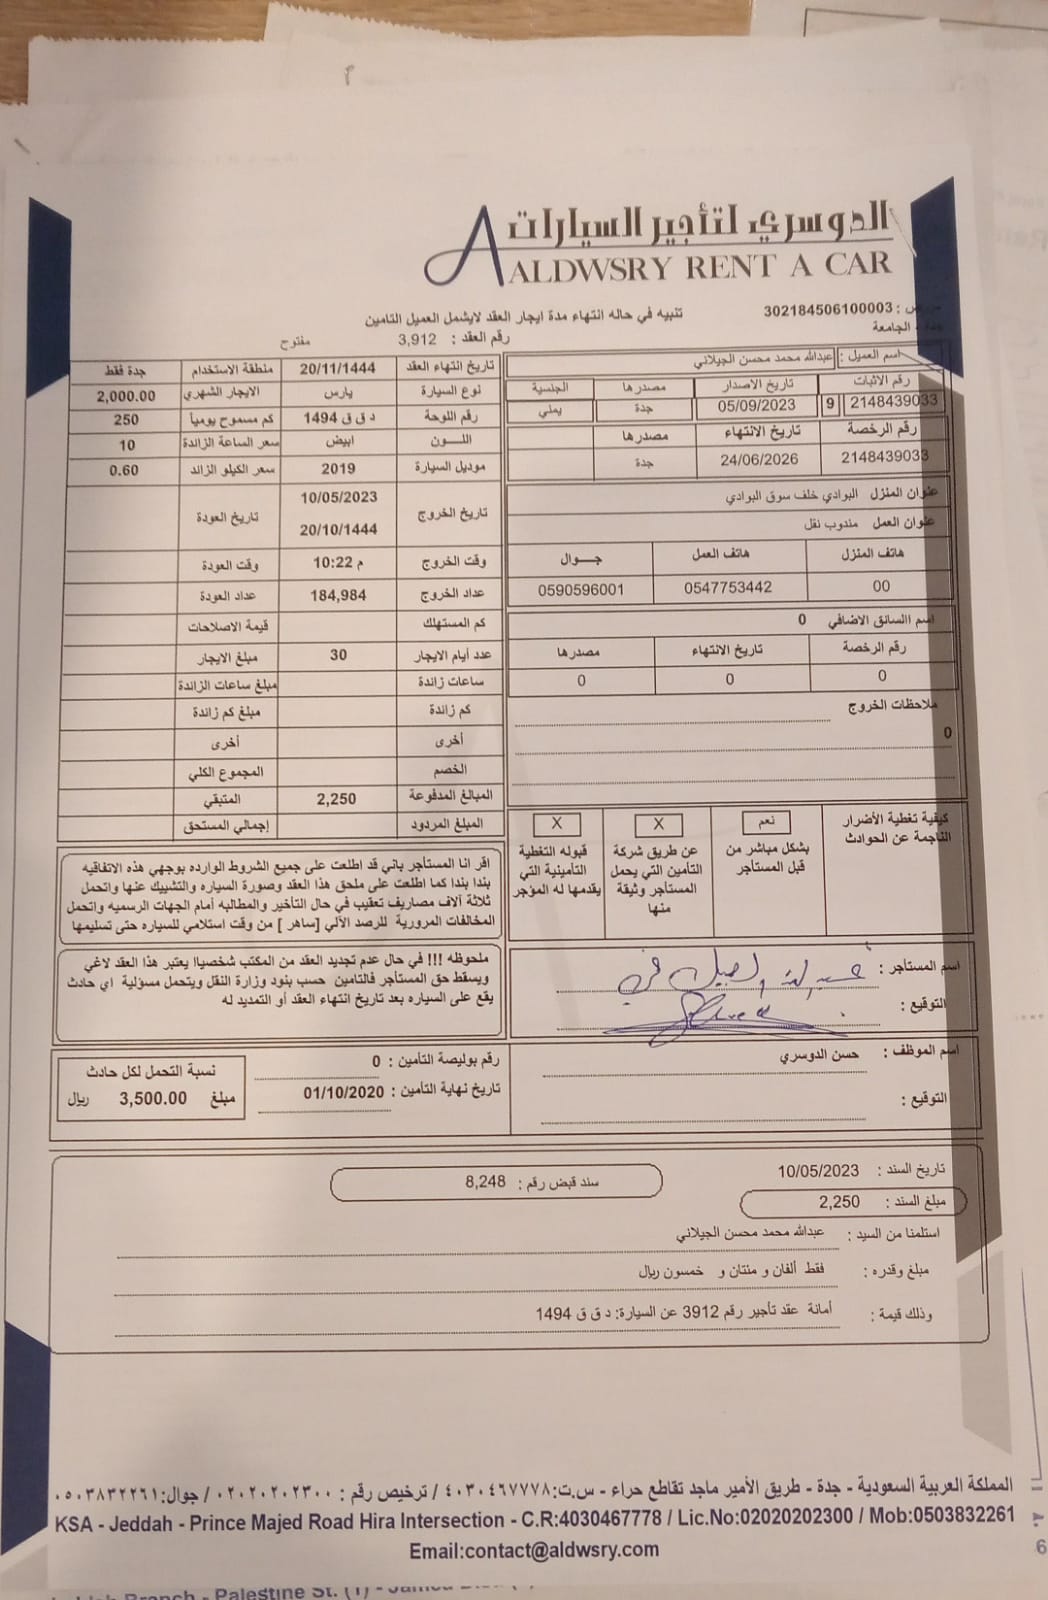 الدوسري لتأجير السيارات
ALDWSRY RENT A CAR
302184506100003 :
الجامعة
تنبيه في حاله انتهاء مدة ايجار العقد لايشمل العميل التامين
رقم العقد : 3,912 مفتوح
اسم العميل : عبدالله محمد محسن الجيلاني
رقم الاثبات تاريخ الاصدار مصدرها الجنسية
2148439033 9 05/09/2023 جدة يمني
رقم الرخصة تاريخ الانتهاء مصدرها
2148439033 24/06/2026 جدة
عنوان المنزل البوادي خلف سوق البوادي
عنوان العمل مندوب نقل
هاتف المنزل هاتف العمل جـــوال
00 0547753442 0590596001
اسم االسائق الاضافي 0
رقم الرخصة تاريخ الانتهاء مصدرها
0 0 0
ملاحظات الخروج
0
تاريخ انتهاء العقد 20/11/1444 منطقة الاستخدام جدة فقط
نوع السيارة يارس الايجار الشهري 2,000.00
رقم اللوحة د ق ق 1494 كم مسموح يومياً 250
اللـــون ابيض سعر الساعة الزائدة 10
موديل السيارة 2019 سعر الكيلو الزائد 0.60
تاريخ الخروج 10/05/2023 20/10/1444 تاريخ العودة
وقت الخروج 10:22 م وقت العودة
عداد الخروج 184,984 عداد العودة
كم المستهلك قيمة الاصلاحات
عدد أيام الايجار 30 مبلغ الايجار
ساعات زائدة مبلغ ساعات الزائدة
كم زائدة مبلغ كم زائدة
أخرى أخرى
الخصم المجموع الكلي
المبالغ المدفوعة 2,250 المتبقي
المبلغ المردود إجمالي المستحق
كيفية تغطية الأضرار الناجمة عن الحوادث
نعم
بشكل مباشر من قبل المستأجر
X
عن طريق شركة التأمين التي يحمل المستأجر وثيقة منها
X
قبوله التغطية التأمينية التي يقدمها له المؤجر
اقر انا المستأجر باني قد اطلعت على جميع الشروط الوارده بوجهي هذه الاتفاقيه
بندا بندا كما اطلعت على ملحق هذا العقد وصورة السياره والتشييك عنها واتحمل
ثلاثة آلاف مصاريف تعقيب في حال التأخير والمطالبه أمام الجهات الرسميه واتحمل
المخالفات المرورية للرصد الآلي [ساهر ] من وقت استلامي للسياره حتى تسليمها
ملحوظه !!! في حال عدم تجديد العقد من المكتب شخصياا يعتبر هذا العقد لاغي
ويسقط حق المستأجر فالتامين حسب بنود وزارة النقل ويتحمل مسؤلية اي حادث
يقع على السياره بعد تاريخ انتهاء العقد أو التمديد له
اسم المستأجر :
التوقيع :
اسم الموظف : حسن الدوسري
التوقيع :
رقم بوليصة التأمين : 0
تاريخ نهاية التأمين : 01/10/2020
نسبة التحمل لكل حادث
مبلغ 3,500.00 ريال
تاريخ السند : 10/05/2023
سند قبض رقم : 8,248
مبلغ السند : 2,250
استلمنا من السيد : عبدالله محمد محسن الجيلاني
مبلغ وقدره : فقط ألفان و مئتان و خمسون ريال
وذلك قيمة : أمانة عقد تأجير رقم 3912 عن السيارة: د ق ق 1494
المملكة العربية السعودية - جدة - طريق الأمير ماجد تقاطع حراء - س.ت:٤٠٣٠٤٦٧٧٧٨ / ترخيص رقم : ٠٢٠٢٠٢٠٢٣٠٠ / جوال:٠٥٠٣٨٣٢٢٦١
KSA - Jeddah - Prince Majed Road Hira Intersection - C.R:4030467778 / Lic.No:02020202300 / Mob:0503832261
Email:contact@aldwsry.com
Branch - Palestine St. (1) -